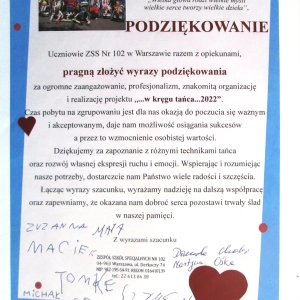 wielkie serce tworzy wielkie dzieła".
PODZIĘKOWANIE
Uczniowie ZSS Nr 102 w Warszawie razem z opiekunami,
pragną złożyć wyrazy podziękowania
za ogromne zaangażowanie, profesjonalizm, znakomitą organizację
i realizację projektu „...w kręgu tańca...2022".
Czas pobytu na zgrupowaniu jest dla nas okazją do poczucia się ważnym
i akceptowanym, daje nam możliwość osiągania sukcesów
a przez to wzmocnienie osobistej wartości.
Dziękujemy za zapoznanie z różnymi technikami tańca
oraz rozwój własnej ekspresji ruchu i emocji. Wspierając i rozumiejąc
nasze potrzeby, dostarczcie nam Państwo wiele radości i szczęścia.
Łącząc wyrazy szacunku, wyrażamy nadzieję na dalszą współpracę
oraz zapewniamy, że okazana nam dobroć serca pozostawi trwały ślad
w naszej pamięci.
Z wyrazami szacunku
ZUZANNA MAJA
MACIEK
ZESPÓŁ SZKÓŁ SPECJALNYCH Nr 102
04-963 Warszawa, ul. Dworcowa
TOMEK
MICHAŁ